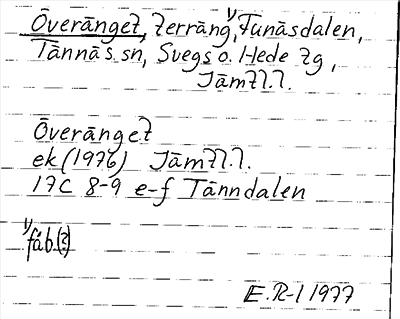 Överänget, terräng,¹⁾ Funäsdalen,
Tännäs sn, Svegs o. Hede tg,
Jämtl.l.
Överänget
ek (1976) Jämtl.l.
17C 8-9 e-f Tänndalen
¹⁾fäb(?)
E.R-l 1977